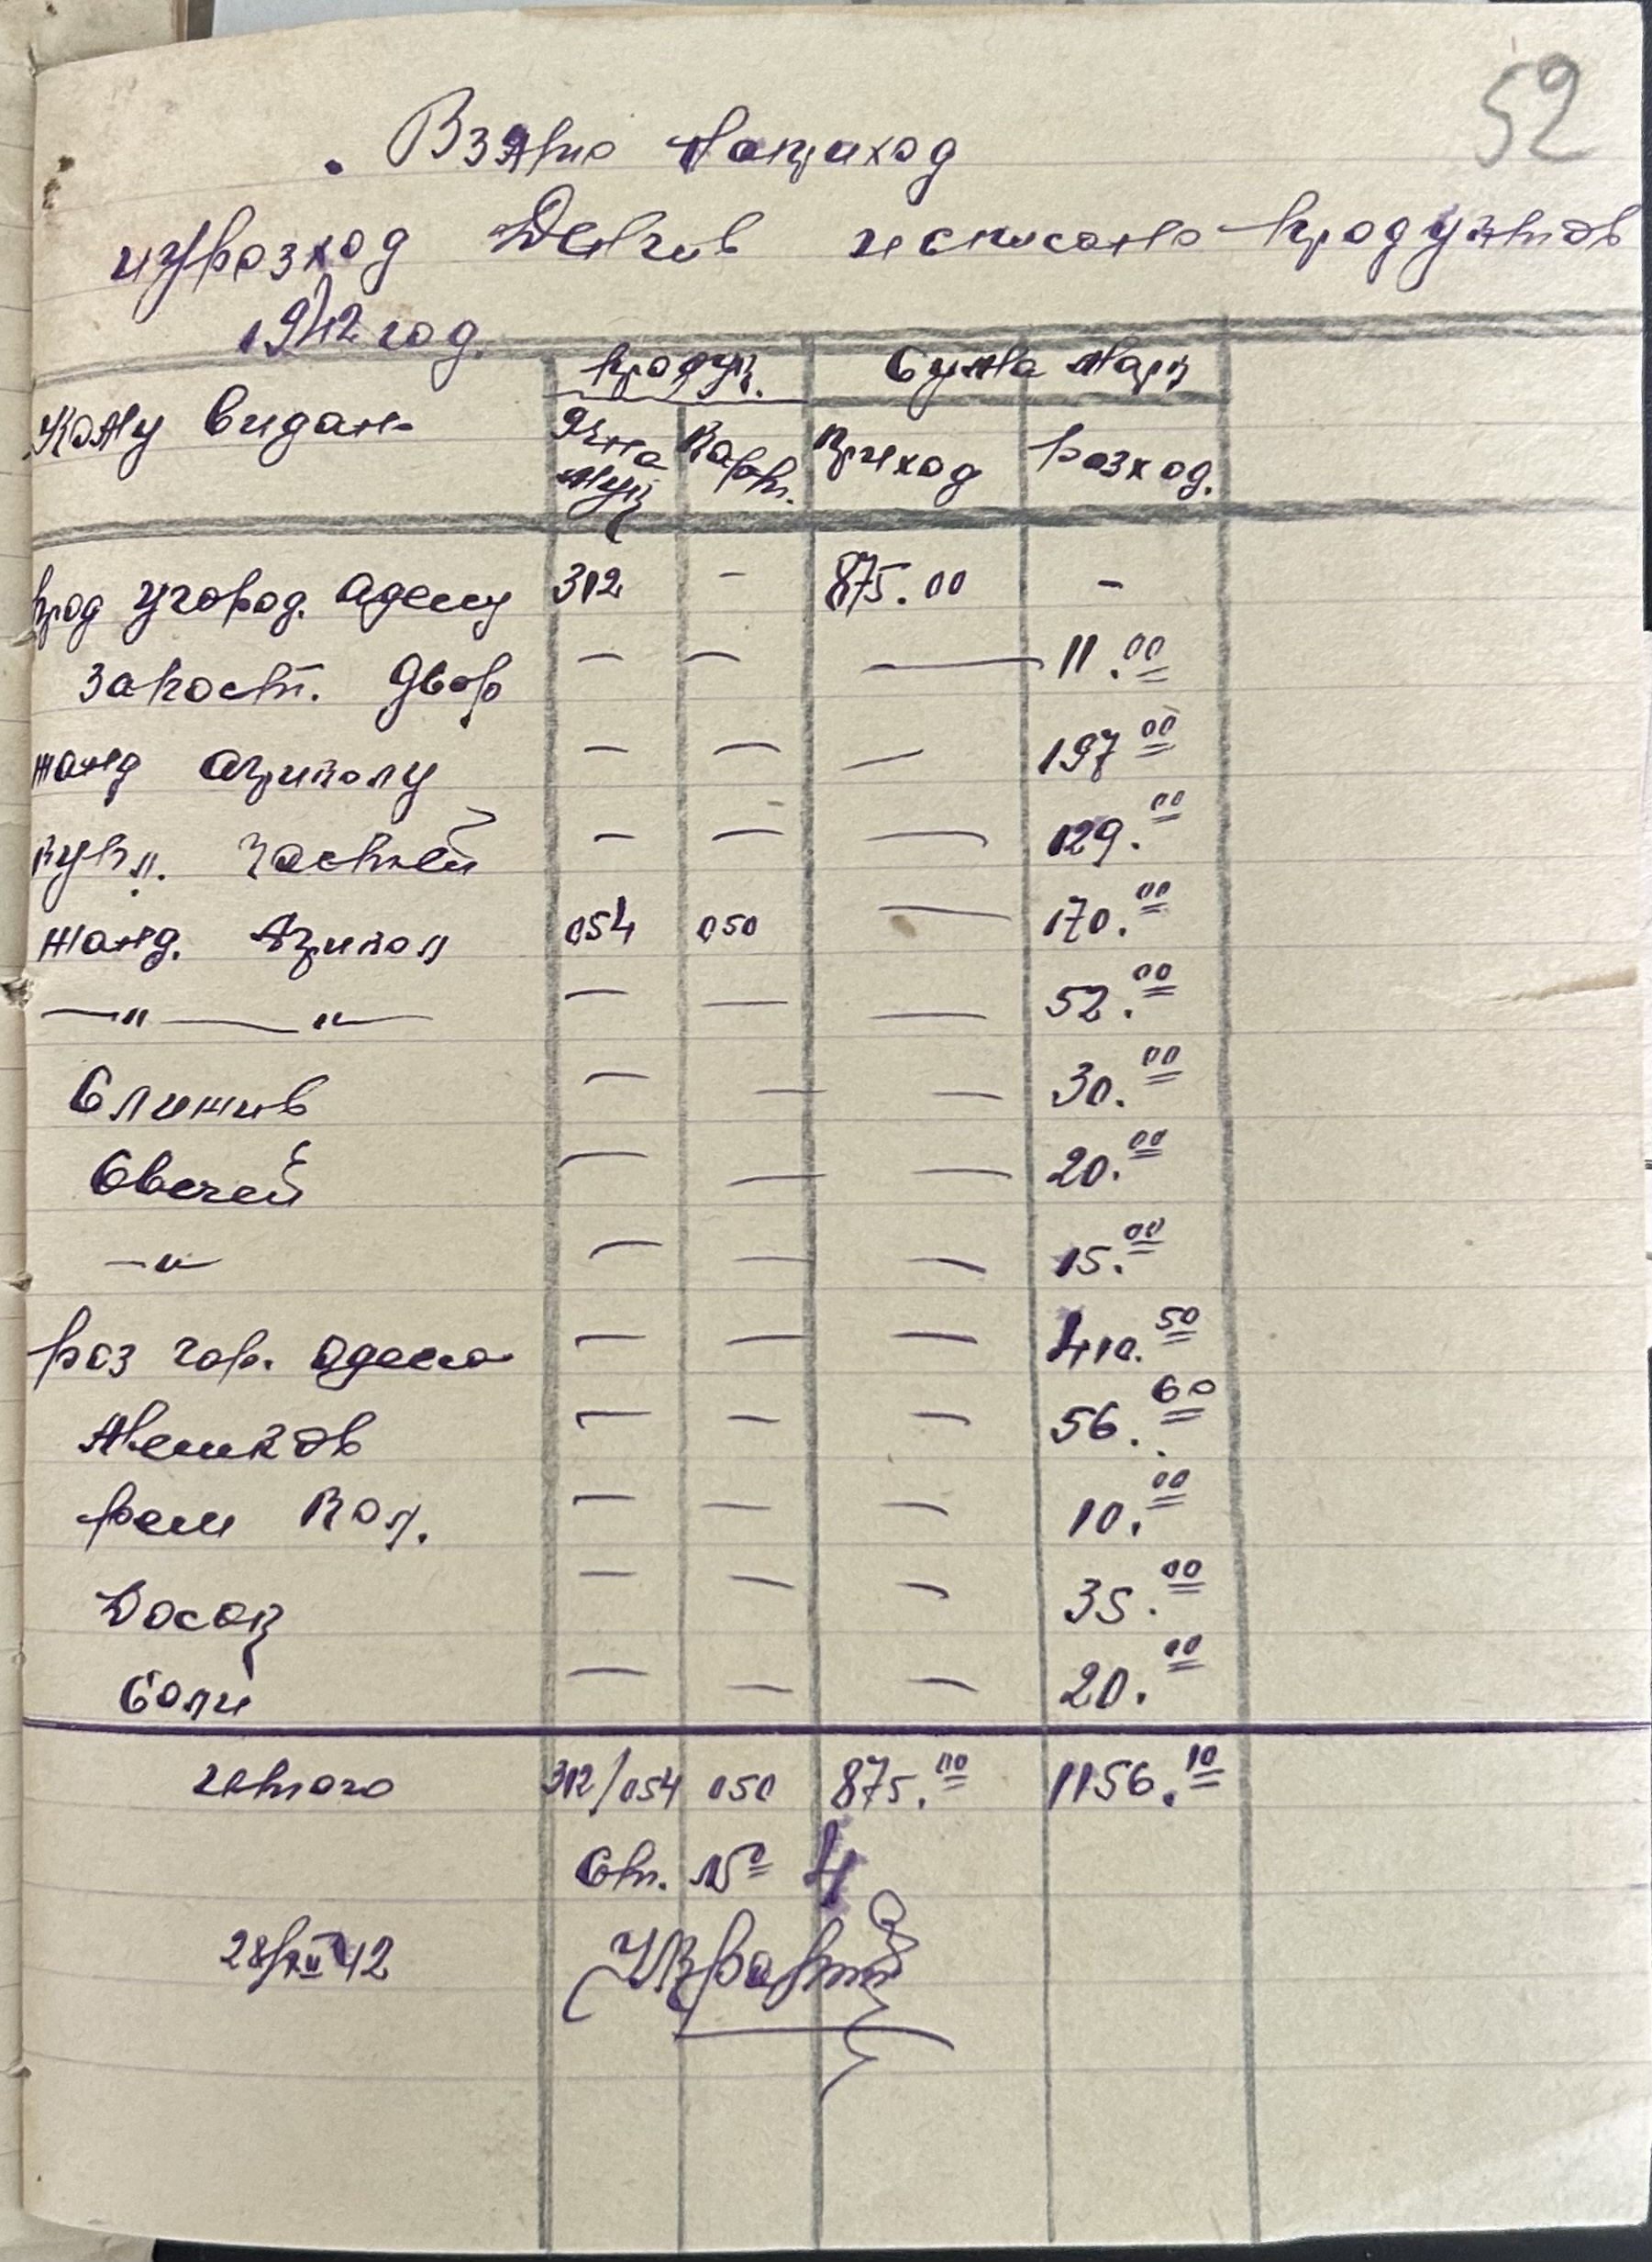 52
Взято наприход
и у розход Денгив и списано продуктов
1942 год.
Кому видан- продук. Сумма марк
Ячна мук Карт. приход розход.
прод у город. адесу 312 - 875.00 -
За пост. двор — — — 11.00
жанд априполу — — — 197 00
купл. частей — — — 129.00
жанд. Априпол 054 050 — 170.00
—"— —"— — — — 52.00
Слижив — — — 30.00
Овечей — — — 20.00
—"— — — — 15.00
роз гор. адеса — — — 410.50
Мешков — — — 56.60
реш кол. — — — 10.00
Досок — — — 35.00
Соли — — — 20.00
итого 312/054 050 875.00 1156.10
Ст. 15 4
28/XII 42